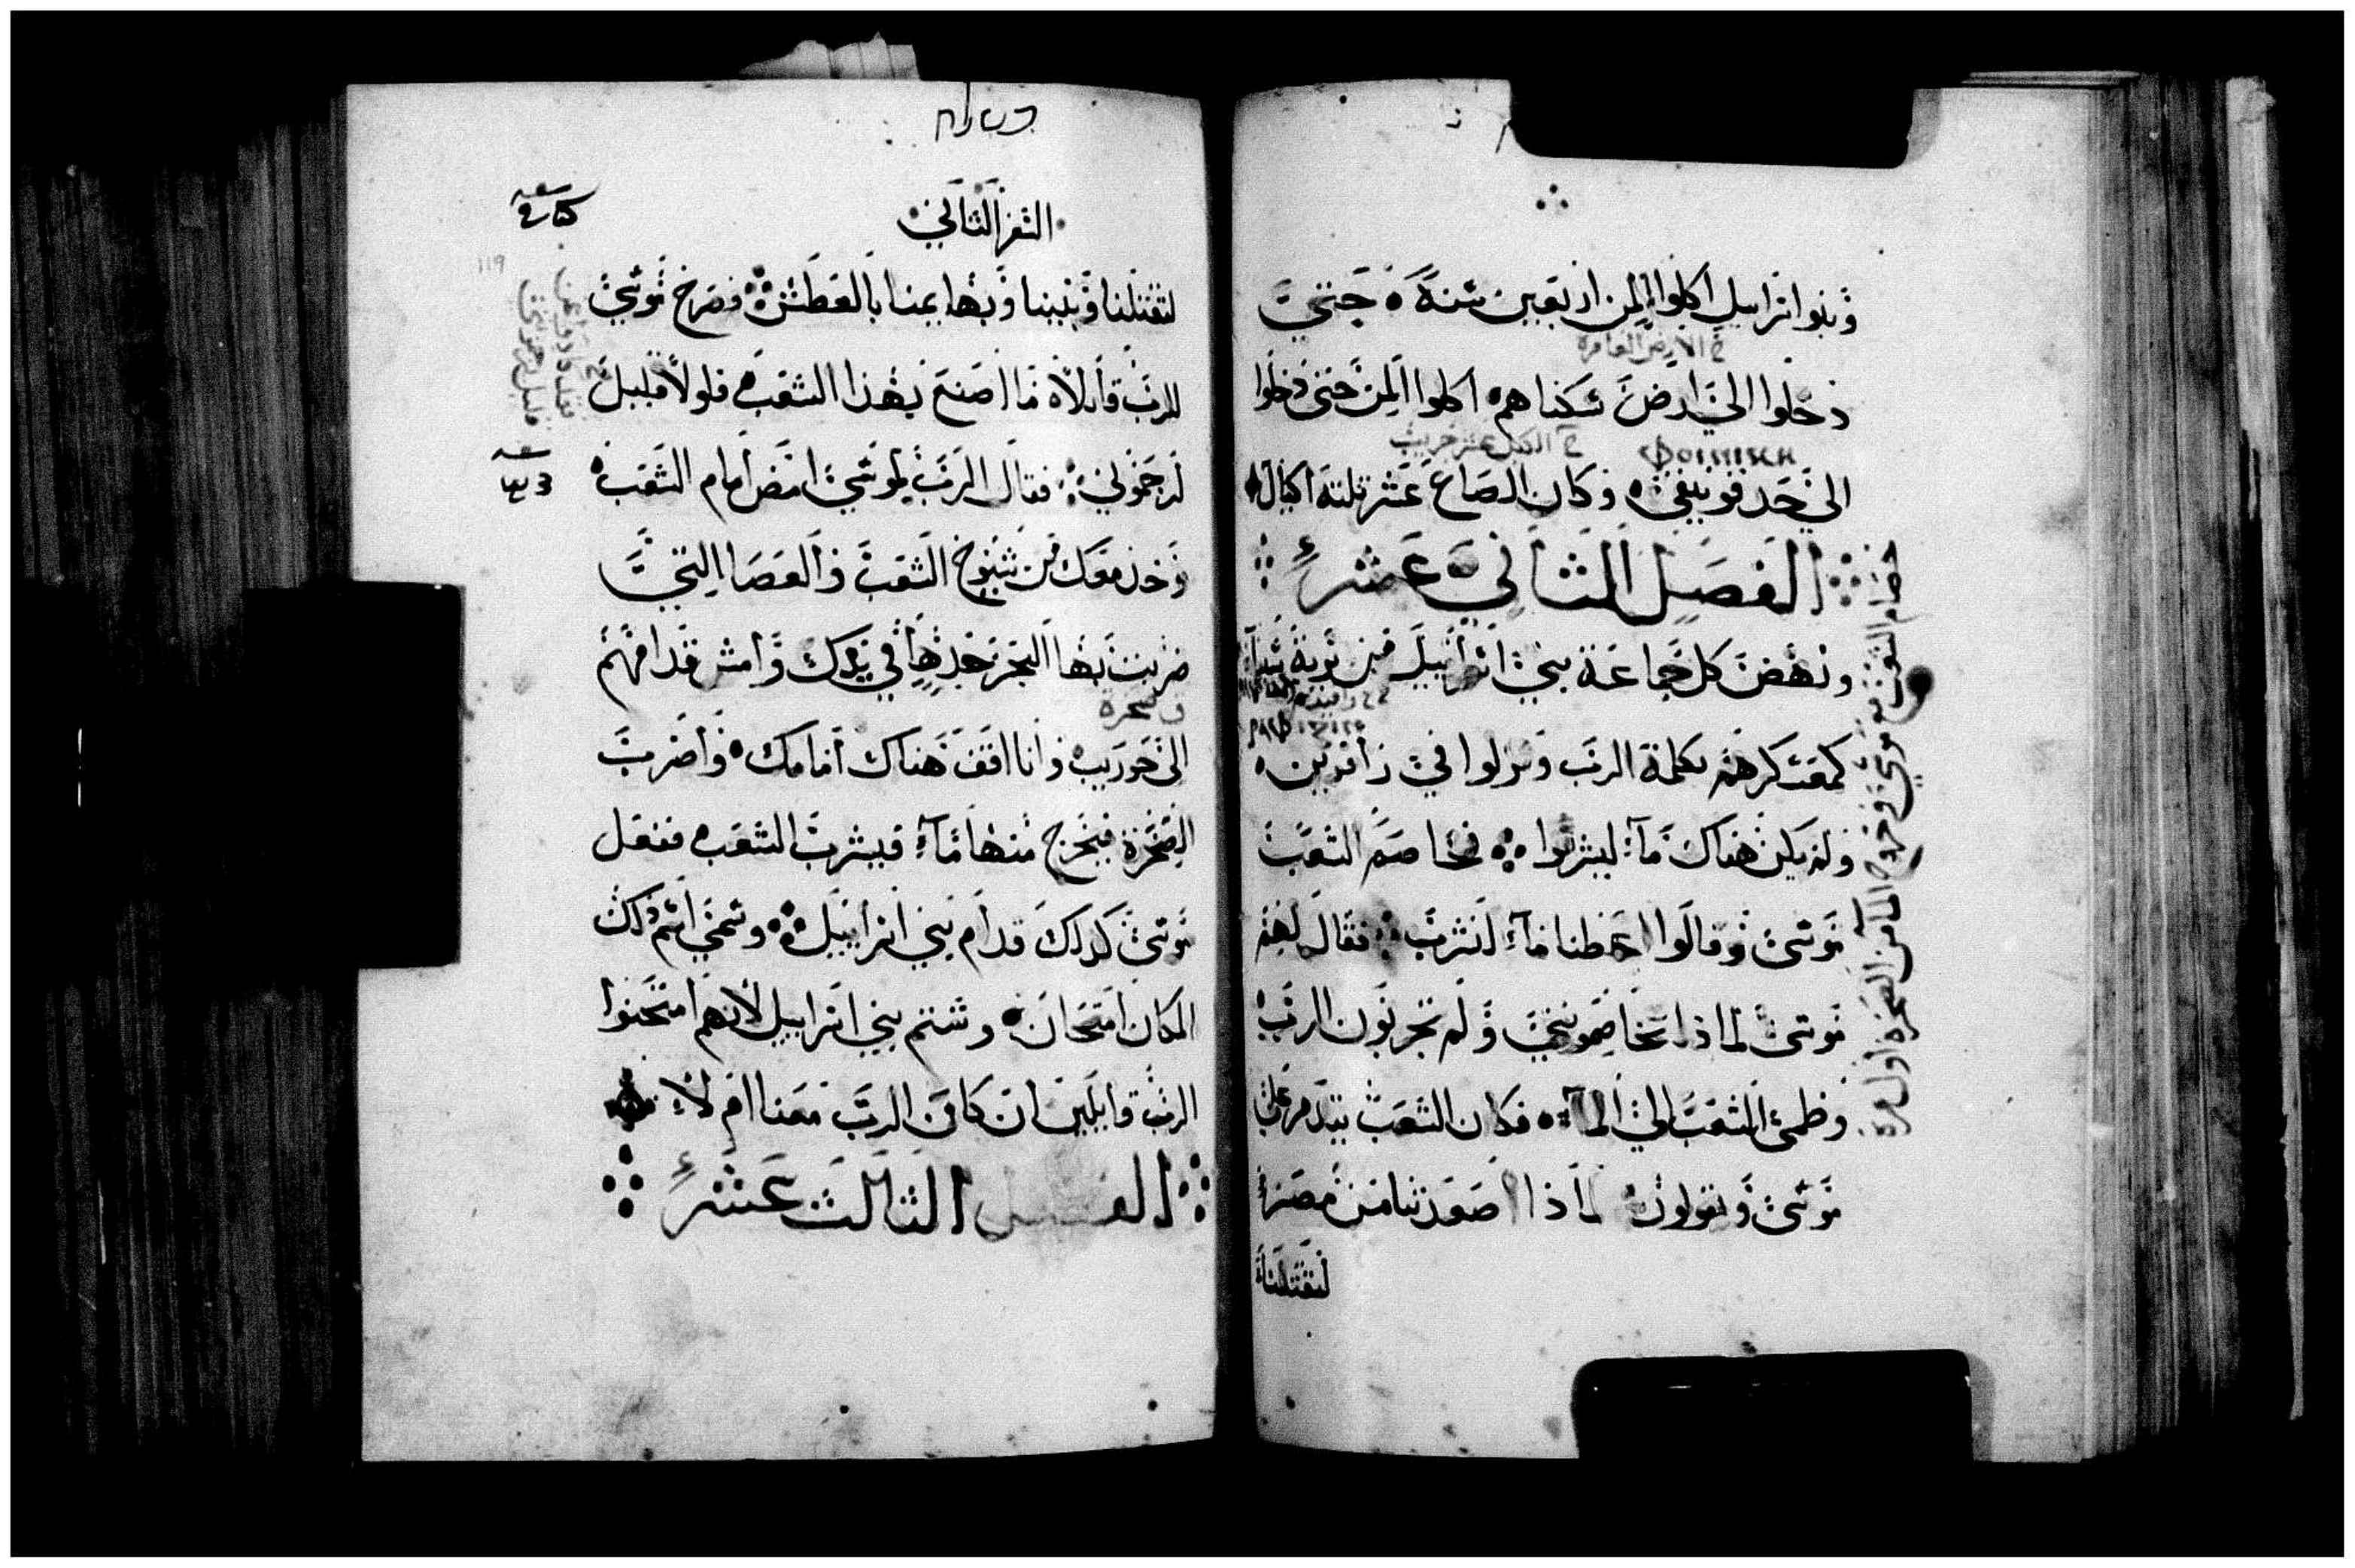 وبنوا اسرائيل اكلوا المن اربعين سنة حتى
خ الارض العامرة
دخلوا الى ارض سكناهم اكلوا المن حتى دخلوا
خ الكيل عشر جريب
الى حد فونيقي وكان الصاع عشر ثلثة اكيال
الفصل الثاني عشر
ونهض كل جماعة بني اسرائيل من برية سينا
كمعسكرهم بكلمة الرب ونزلوا في رافدين
ولم يكن هناك مآء ليشربوا فخاصم الشعب
موسى وقالوا اعطنا مآء لنشرب فقال لهم
موسى لماذا تخاصموني ولم تجربون الرب
وظمئ الشعب الى المآء فكان الشعب يتذمر على
موسى ويقولون لماذا اصعدتنا من مصر
لتقتلنا
خصام الشعب مع موسى وخروج المآ من الصخرة اول مرة
السفر الثاني
119
لتقتلنا وبنينا وبهايمنا بالعطش فصرخ موسى
للرب قايلا ما اصنع بهذا الشعب فلولا قليل
لرجموني فقال الرب لموسى امض امام الشعب
وخذ معك من شيوخ الشعب والعصا التي
ضربت بها البحر خذها في يدك وامش قدامهم
الى حوريب وانا اقف هناك امامك واضرب
الصخرة فيخرج منها مآء فيشرب الشعب ففعل
موسى كذلك قدام بني اسرائيل وسمي اسم ذلك
المكان امتحان وشتم بني اسرائيل لانهم امتحنوا
الرب قايلين ان كان الرب معنا ام لا
الفصل الثالث عشر